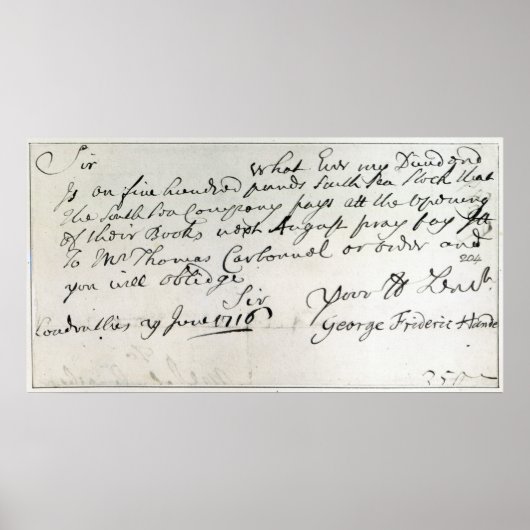 Sir What Ever my Dividend
Is on five hundred pounds South Sea Stock that
The South Sea Company pays att the opening
of their Books next August pray pay
To Mr Thomas Carbonnel or order and
204
you will oblidge
Sir Your
London this 29 June 1716 George Frideric Hande